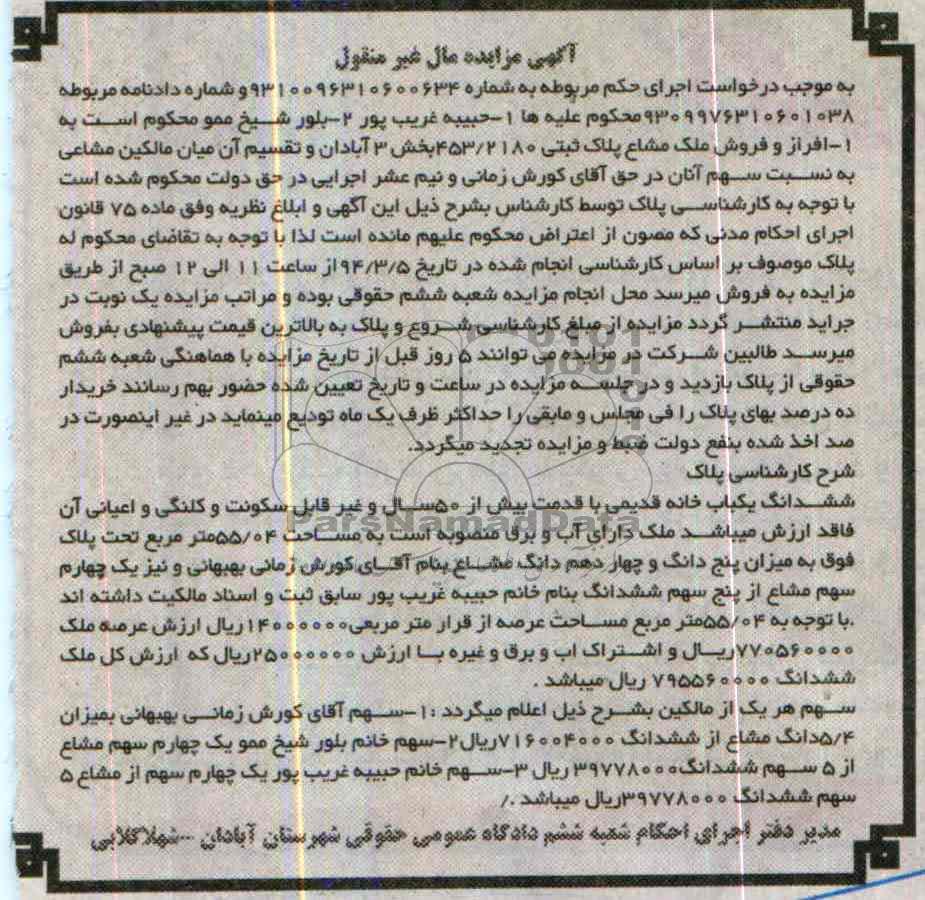 آگهی مزایده مال غیر منقول
به موجب درخواست اجرای حکم مربوطه به شماره ۹۳۱۰۰۹۶۳۱۰۶۰۰۶۳۴ و شماره دادنامه مربوطه
۹۳۰۹۹۷۶۳۱۰۶۰۱۰۳۸ محکوم علیه ها ۱-حبیبه غریب پور ۲-بلور شیخ ممو محکوم است به
۱-افراز و فروش ملک مشاع پلاک ثبتی ۴۵۳/۲۱۸۰بخش ۳ آبادان و تقسیم آن میان مالکین مشاعی
به نسبت سهم آنان در حق آقای کورش زمانی و نیم عشر اجرایی در حق دولت محکوم شده است
با توجه به کارشناسی پلاک توسط کارشناس بشرح ذیل این آگهی و ابلاغ نظریه وفق ماده ۷۵ قانون
اجرای احکام مدنی که مصون از اعتراض محکوم علیهم مانده است لذا با توجه به تقاضای محکوم له
پلاک موصوف بر اساس کارشناسی انجام شده در تاریخ ۹۴/۳/۵ از ساعت ۱۱ الی ۱۲ صبح از طریق
مزایده به فروش میرسد محل انجام مزایده شعبه ششم حقوقی بوده و مراتب مزایده یک نوبت در
جراید منتشر گردد مزایده از مبلغ کارشناسی شروع و پلاک به بالاترین قیمت پیشنهادی بفروش
میرسد طالبین شرکت در مزایده می توانند ۵ روز قبل از تاریخ مزایده با هماهنگی شعبه ششم
حقوقی از پلاک بازدید و در جلسه مزایده در ساعت و تاریخ تعیین شده حضور بهم رسانند خریدار
ده درصد بهای پلاک را فی مجلس و مابقی را حداکثر ظرف یک ماه تودیع مینماید در غیر اینصورت در
صد اخذ شده بنفع دولت ضبط و مزایده تجدید میگردد.
شرح کارشناسی پلاک
ششدانگ یکباب خانه قدیمی با قدمت بیش از ۵۰سال و غیر قابل سکونت و کلنگی و اعیانی آن
فاقد ارزش میباشد ملک دارای آب و برق منصوبه است به مساحت ۵۵/۰۴متر مربع تحت پلاک
فوق به میزان پنج دانگ و چهار دهم دانگ مشاع بنام آقای کورش زمانی بهبهانی و نیز یک چهارم
سهم مشاع از پنج سهم ششدانگ بنام خانم حبیبه غریب پور سابق ثبت و اسناد مالکیت داشته اند
.با توجه به ۵۵/۰۴متر مربع مساحت عرصه از قرار متر مربعی۱۴۰۰۰۰۰۰ریال ارزش عرصه ملک
۷۷۰۵۶۰۰۰۰ریال و اشتراک اب و برق و غیره با ارزش ۲۵۰۰۰۰۰۰ریال که ارزش کل ملک
ششدانگ ۷۹۵۵۶۰۰۰۰ ریال میباشد .
سهم هر یک از مالکین بشرح ذیل اعلام میگردد :۱-سهم آقای کورش زمانی بهبهانی بمیزان
۵/۴دانگ مشاع از ششدانگ ۷۱۶۰۰۴۰۰۰ریال۲-سهم خانم بلور شیخ ممو یک چهارم سهم مشاع
از ۵ سهم ششدانگ۳۹۷۷۸۰۰۰ ریال ۳-سهم خانم حبیبه غریب پور یک چهارم سهم از مشاع ۵
سهم ششدانگ ۳۹۷۷۸۰۰۰ریال میباشد ./
مدیر دفتر اجرای احکام شعبه ششم دادگاه عمومی حقوقی شهرستان آبادان -شهلاگلابی
ParsNamadData